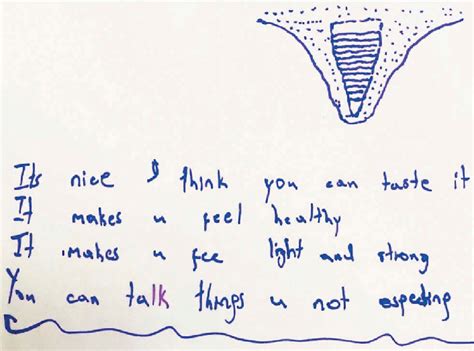 Its nice I think you can taste it
It makes u feel healthy
It makes u fee light and strong
You can talk things u not especting